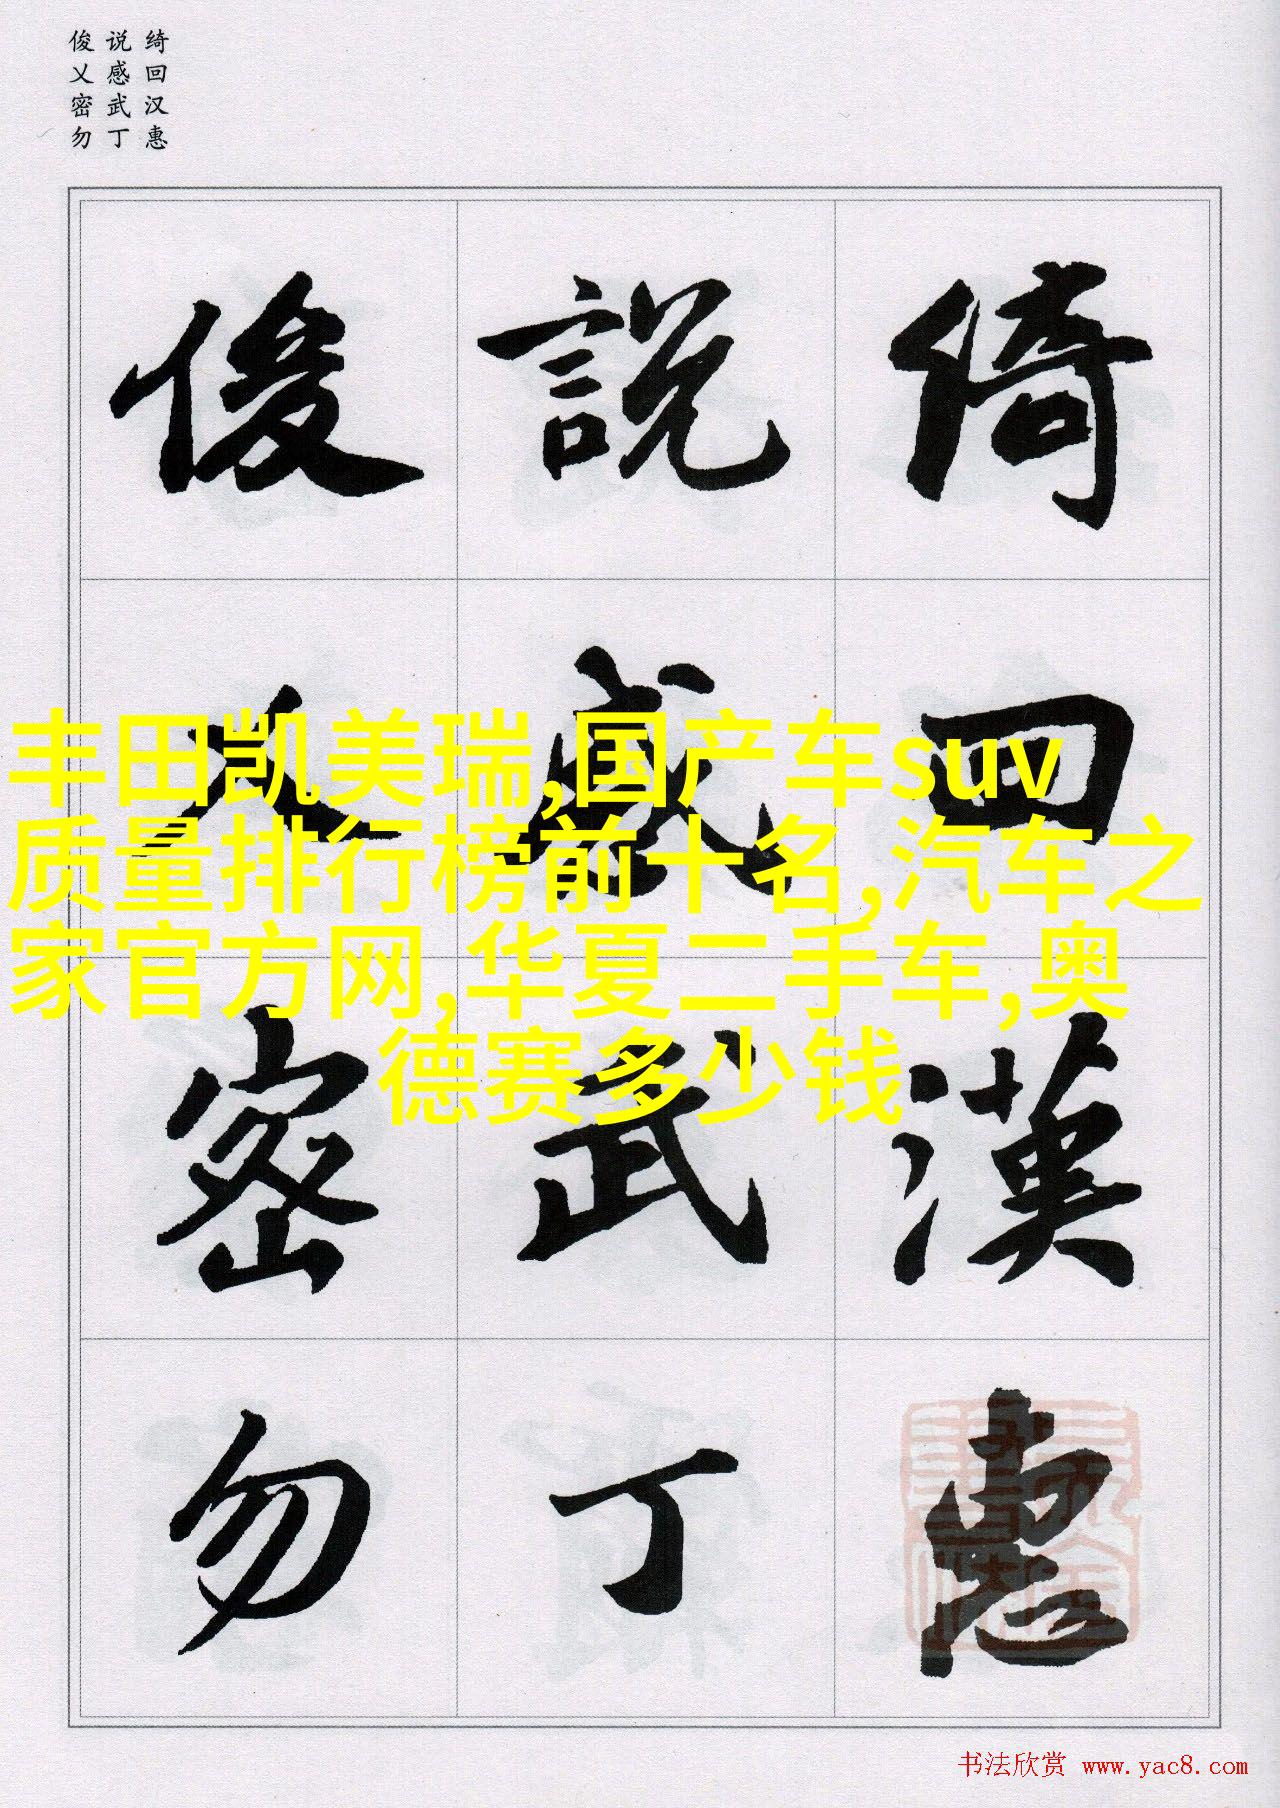 绮回汉惠
说感武丁
俊乂密勿
綺回漢惠
說感武丁
俊乂密勿
丰田凯美瑞,国产车suv
质量排行榜前十名,汽车之
家官方网,华夏二手车,奥
德赛多少钱
书法欣赏 www.yac8.com